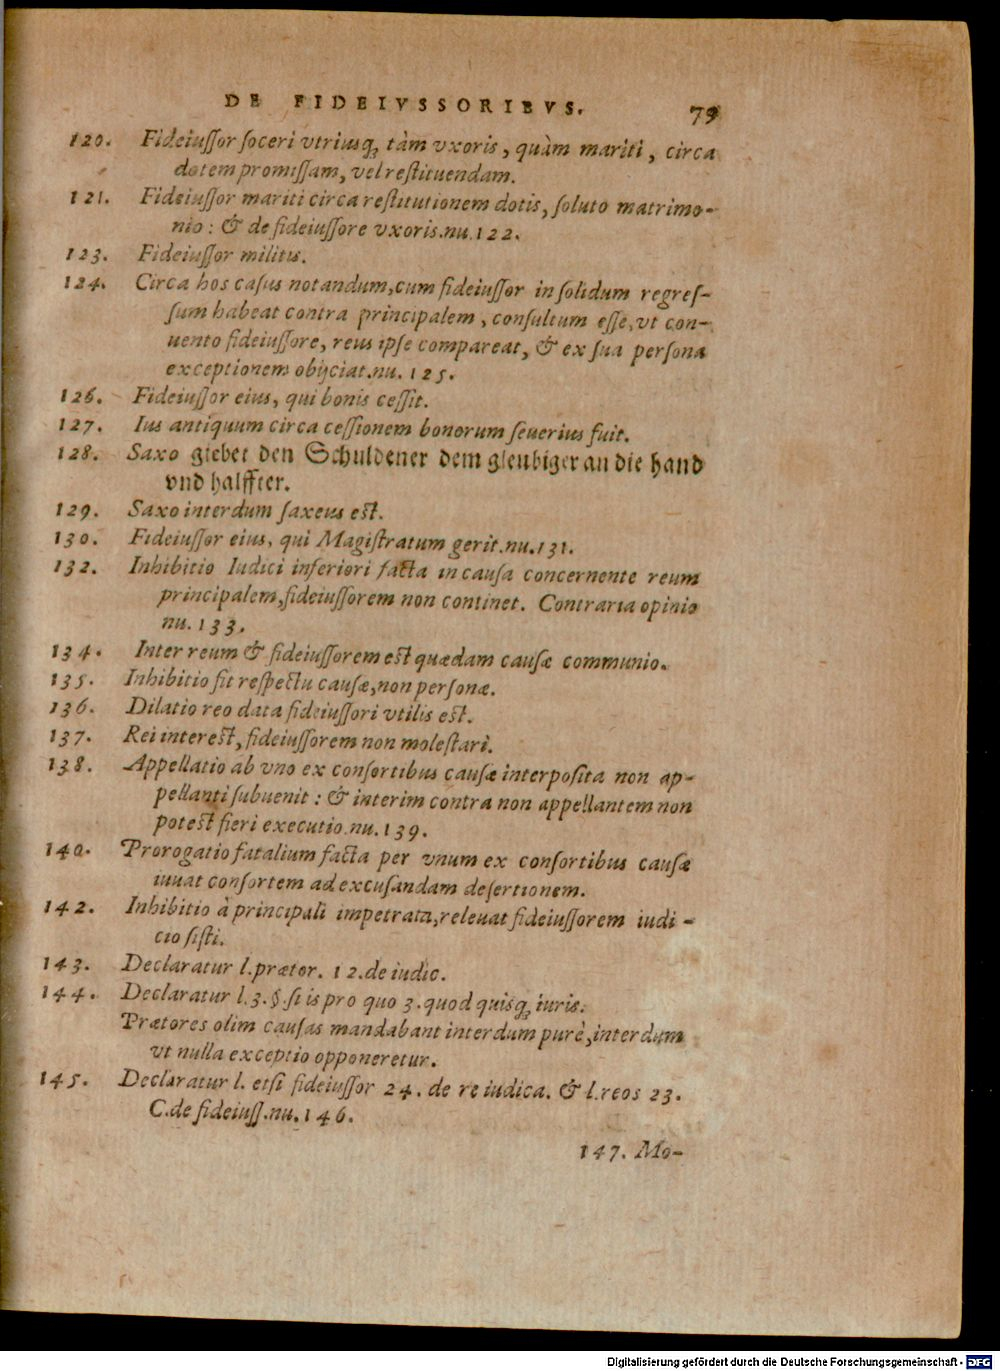 DE FIDEIVSSORIBVS. 79
120. Fideiuſſor ſoceri vtriusq; tàm vxoris, quàm mariti, circa
dotem promiſſam, vel reſtituendam.
121. Fideiuſſor mariti circa reſtitutionem dotis, ſoluto matrimo-
nio: & de fideiuſſore vxoris. nu. 122.
123. Fideiuſſor militis.
124. Circa hos caſus notandum, cum fideiuſſor in ſolidum regreſ-
ſum habeat contra principalem, conſultum eſſe, vt con-
uento fideiuſſore, reus ipſe compareat, & ex ſua perſona
exceptionem obijciat. nu. 125.
126. Fideiuſſor eius, qui bonis ceſſit.
127. Ius antiquum circa ceſſionem bonorum ſeuerius fuit.
128. Saxo giebet den Schuldener dem gleubiger an die hand
vnd halffter.
129. Saxo interdum ſaxeus eſt.
130. Fideiuſſor eius, qui Magiſtratum gerit. nu. 131.
132. Inhibitio Iudici inferiori facta in cauſa concernente reum
principalem, fideiuſſorem non continet. Contraria opinio
nu. 133.
134. Inter reum & fideiuſſorem eſt quædam cauſæ communio.
135. Inhibitio fit reſpectu cauſæ, non perſonæ.
136. Dilatio reo data fideiuſſori vtilis eſt.
137. Rei intereſt, fideiuſſorem non moleſtari.
138. Appellatio ab vno ex conſortibus cauſæ interpoſita non ap-
pellanti ſubuenit: & interim contra non appellantem non
poteſt fieri executio. nu. 139.
140. Prorogatio fatalium facta per vnum ex conſortibus cauſæ
iuuat conſortem ad excuſandam deſertionem.
142. Inhibitio à principali impetrata, releuat fideiuſſorem iudi-
cio ſiſti.
143. Declaratur l. prætor. 12. de iudic.
144. Declaratur l. 3. §. ſi is pro quo 3. quod quisq; iuris.
Prætores olim cauſas mandabant interdum purè, interdum
vt nulla exceptio opponeretur.
145. Declaratur l. etſi fideiuſſor 24. de re iudica. & l. reos 23.
C. de fideiuſſ. nu. 146.
147. Mo-
Digitalisierung gefördert durch die Deutsche Forschungsgemeinschaft - DFG